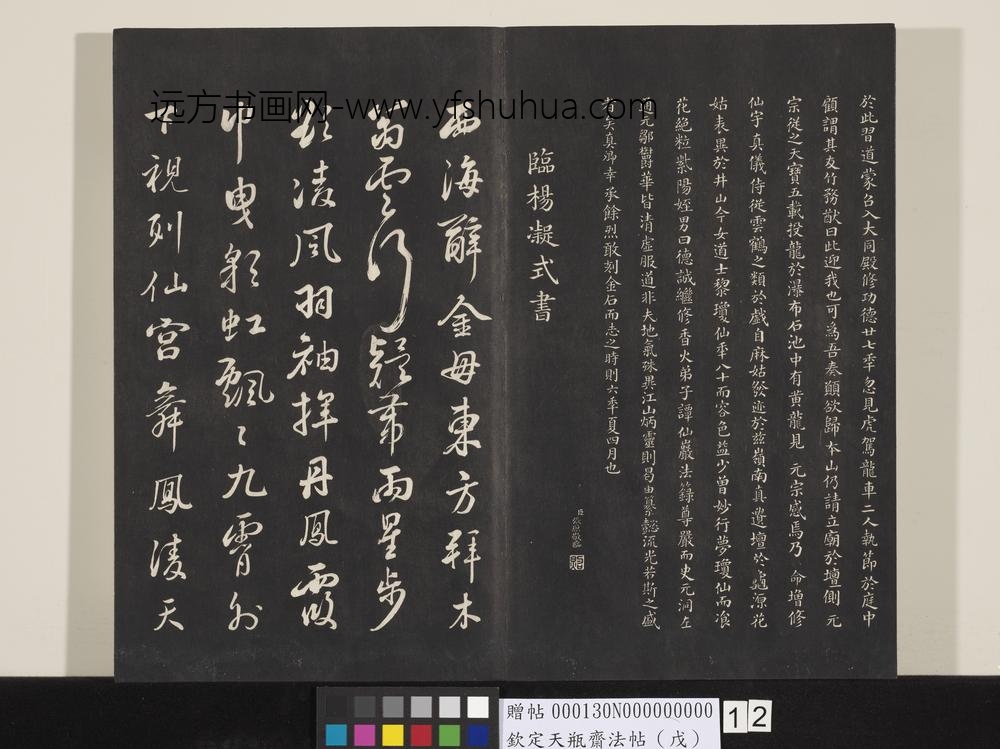 於此習道蒙召入大同殿修功德廿七秊忽見虎駕龍車二人執節於庭中
顧謂其友竹務猷曰此迎我也可為吾奏願欲歸本山仍請立廟於壇側元
宗從之天寶五載投龍於瀑布石池中有黃龍見元宗感焉乃命增修
仙宇真儀侍從雲鶴之類於戲自麻姑發迹於茲嶺南真遺壇於龜源花
姑表異於井山今女道士黎瓊仙秊八十而容色益少曾妙行夢瓊仙而飡
花絕粒紫陽姪男曰德誠繼修香火弟子譚仙巖法籙尊嚴而史元洞左
通元鄒鬱華皆清虛服道非夫地氣殊異江山炳靈則曷由纂懿流光若斯之盛
者矣真卿幸承餘烈敢刻金石而志之時則六秊夏四月也
臣張照敬臨
臨楊凝式書
西海辭金母東方拜木
翁雲行疑帶雨星步
欲凌風羽袖揮丹鳳霞
巾曳彩虹飄〻九霄外
下視列仙宮舞鳳凌天
远方书画网-www.yfshuhua.com
贈帖 000130N000000000
欽定天瓶齋法帖（戊）
12